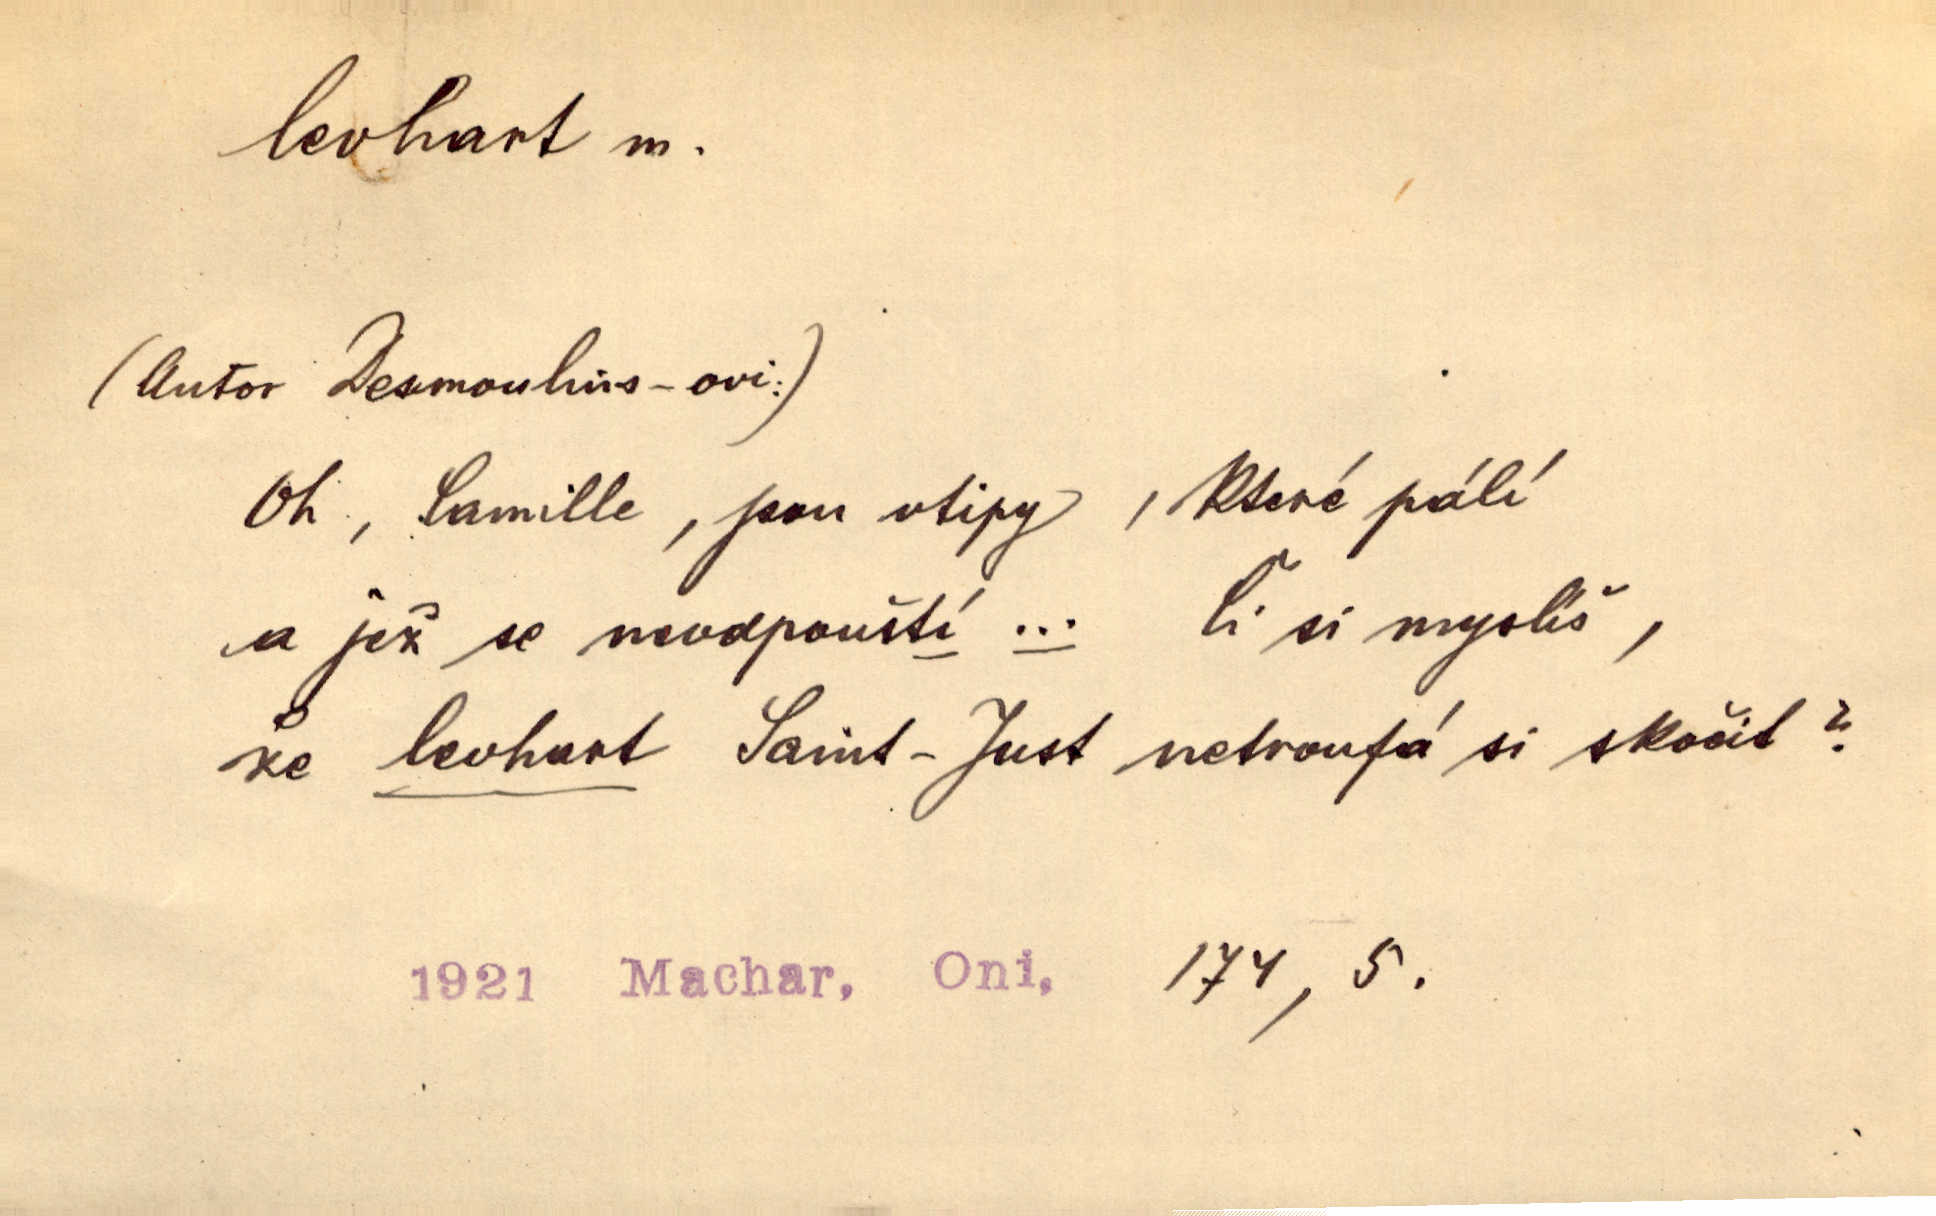 levhart m.
(Autor Desmoulins-ovi:)
Oh, Camille, jsou vtipy, které pálí
a jež se neodpouští ... Či si myslíš,
že levhart Saint-Just netroufá si skočit?
1921 Machar, Oni, 174, 5.